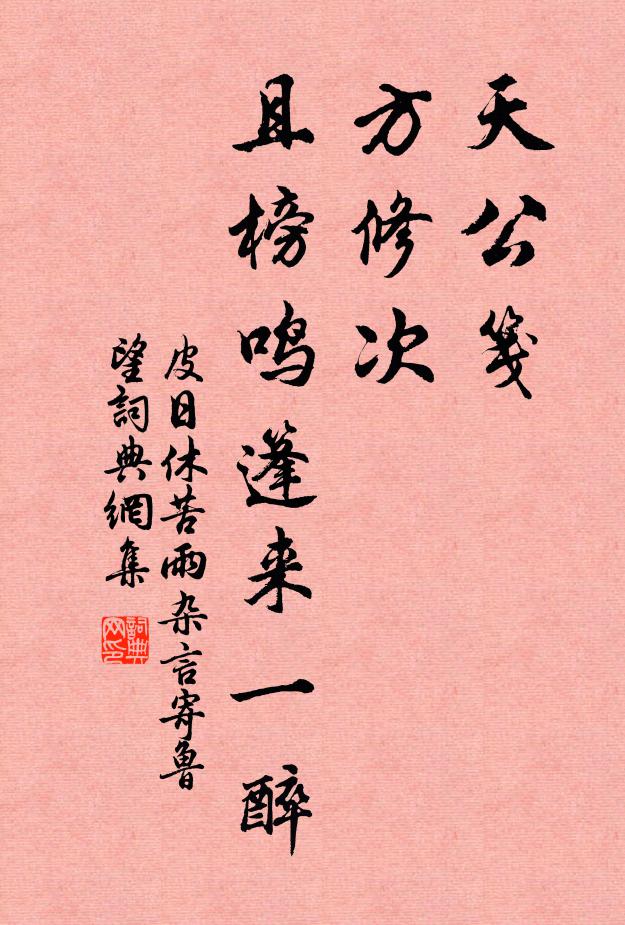 天公箋
方修次
且榜鳴篷来一醉
皮日休苦雨杂言寄魯
望詞典網集
詞典
网印